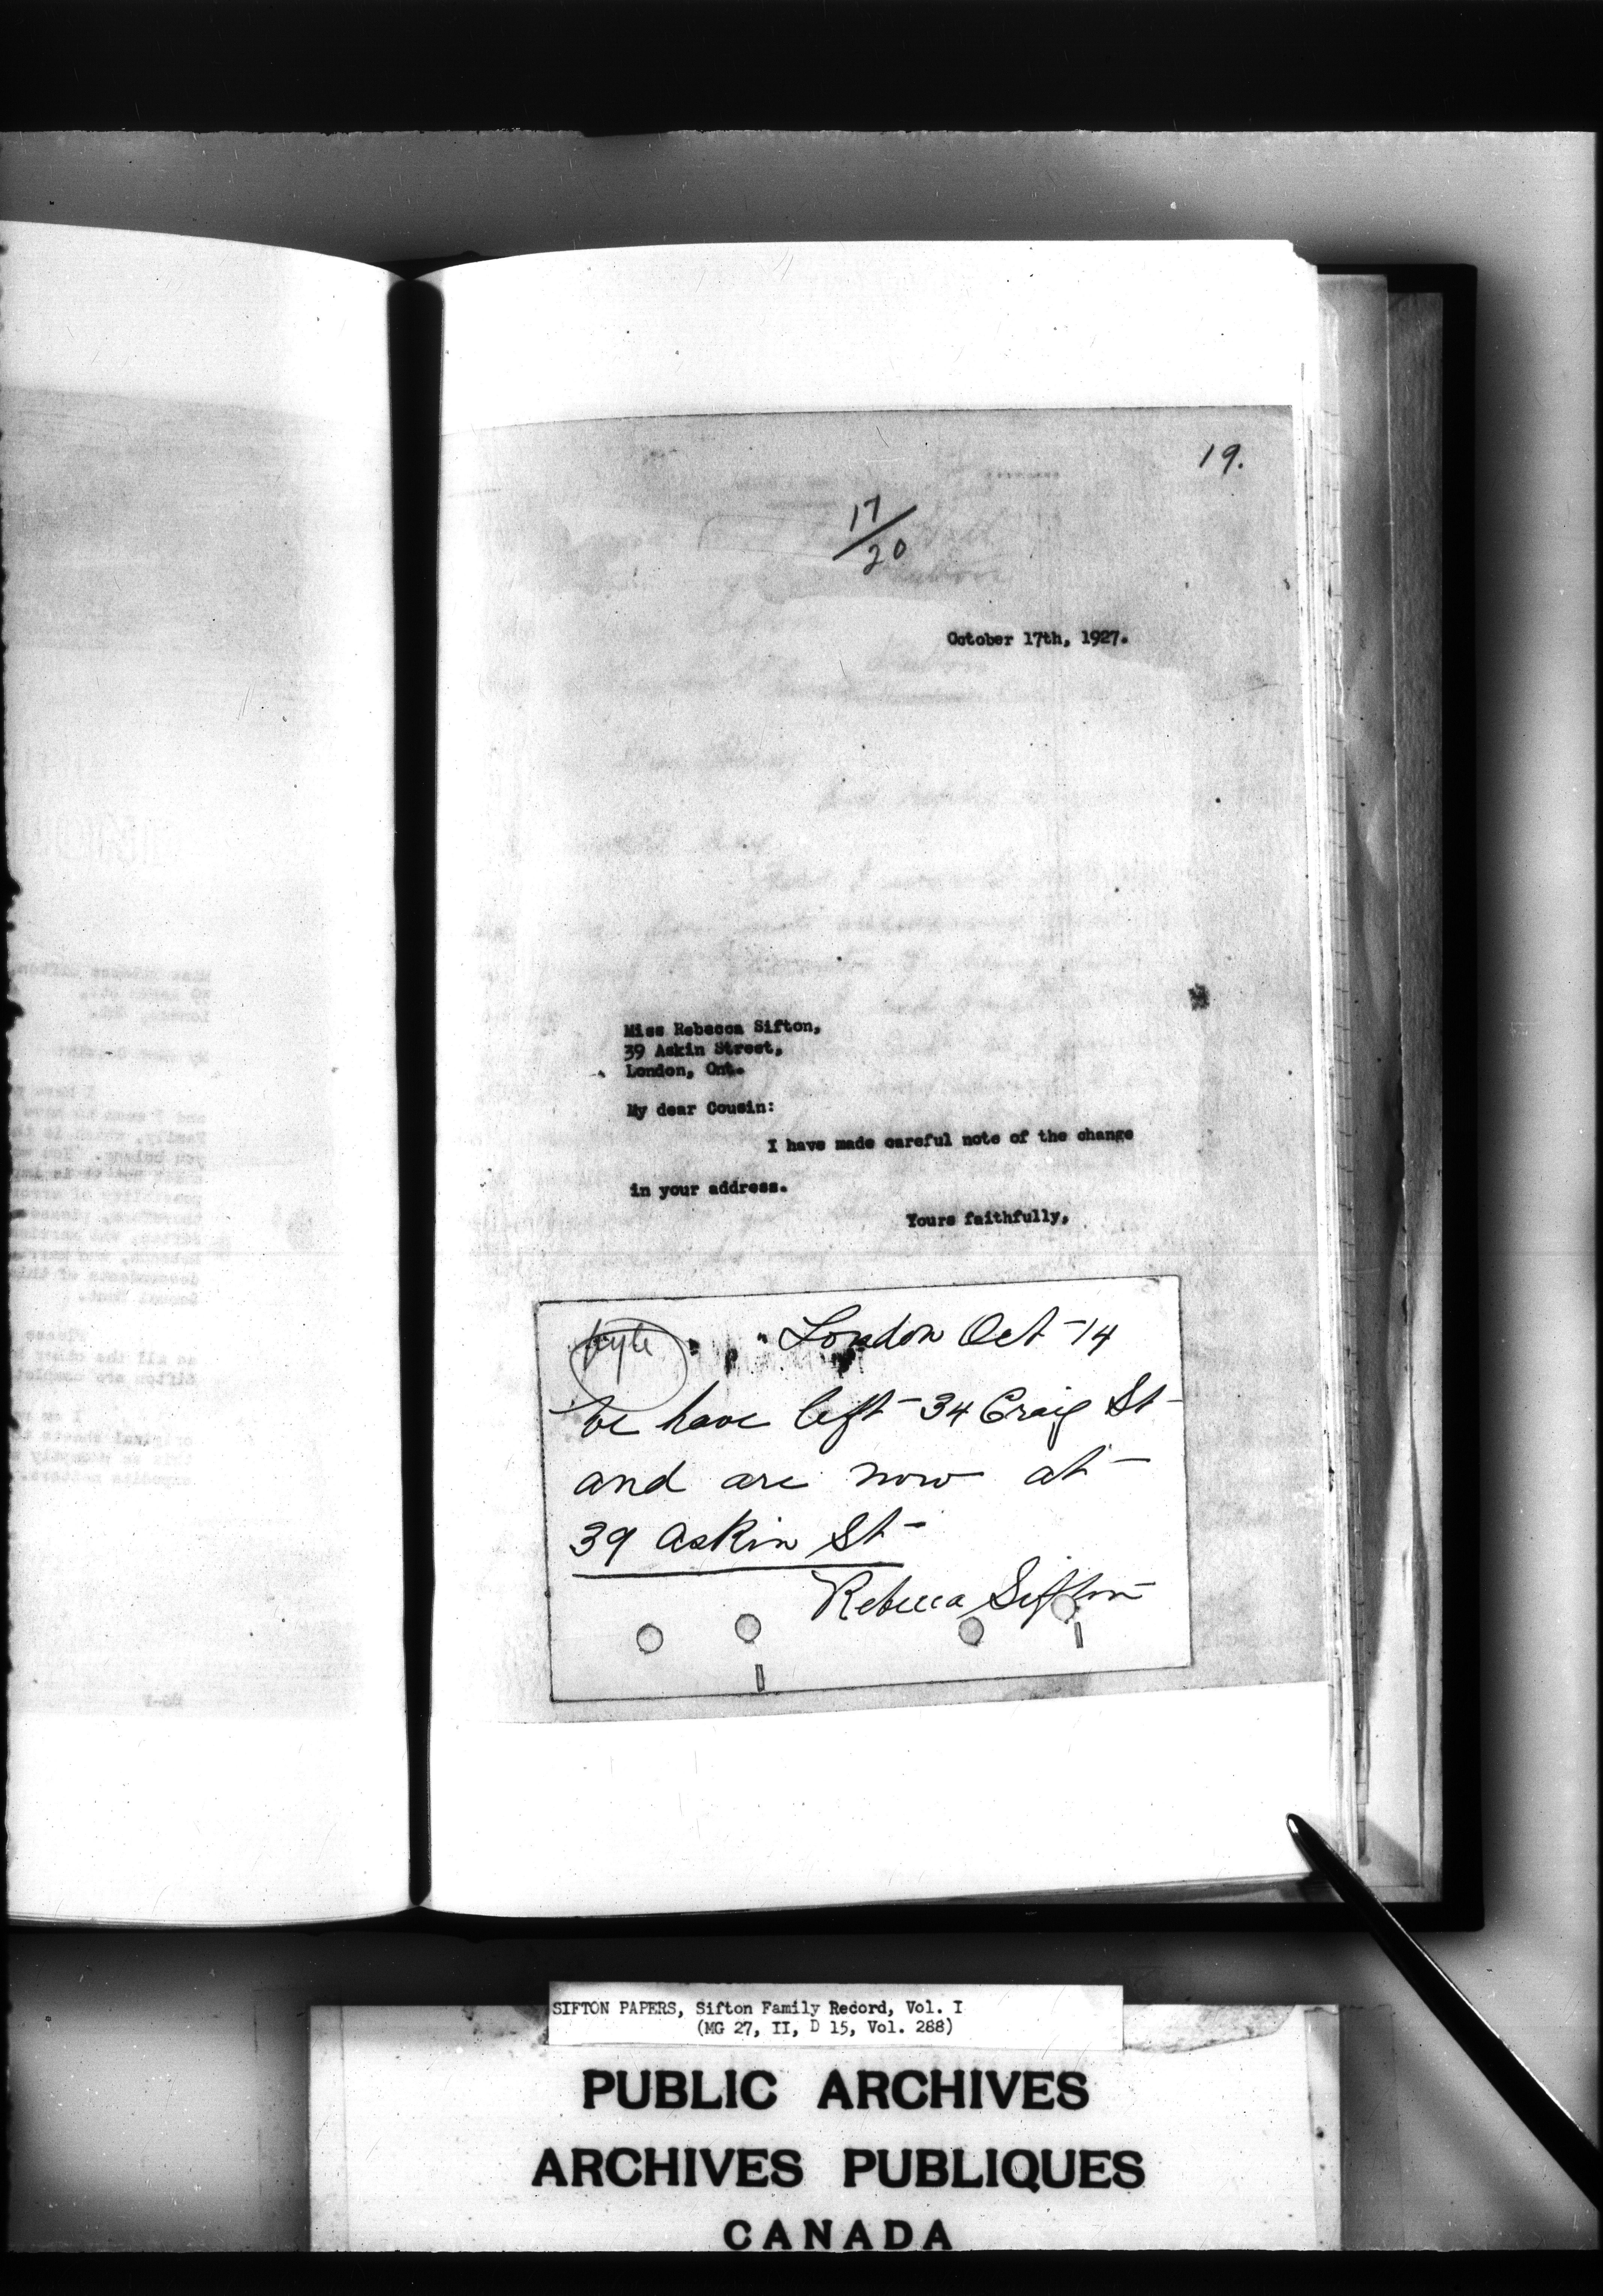 19.
17/20
October 17th, 1927.
Miss Rebecca Sifton,
39 Askin Street,
London, Ont.
My dear Cousin:
I have made careful note of the change
in your address.
Yours faithfully,
London Oct-14
We have left 34 Craig St
and are now at
39 Askin St
Rebecca Sifton
SIFTON PAPERS, Sifton Family Record, Vol. I
(MG 27, II, D 15, Vol. 288)
PUBLIC ARCHIVES
ARCHIVES PUBLIQUES
CANADA